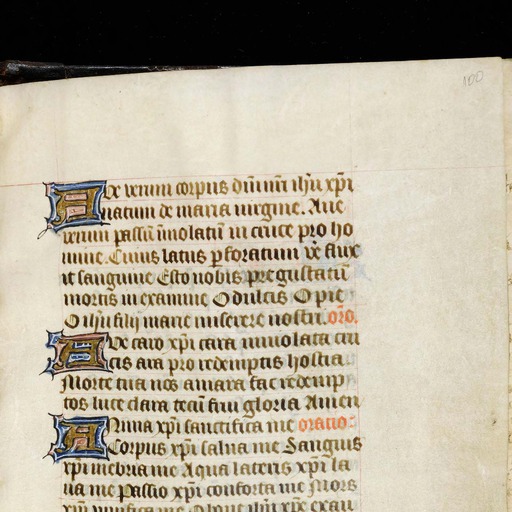 100
Ave verum corpus dm̄ nr̄i ihū xpī
natum de maria virgine. Ave
verum passū īmolatū in cruce pro ho
mine. Cuius latus ꝑforatum
et sanguine Esto nobis pregustatū
mortis in examine O dulcis O pie
O ihū fili marie miserere nostri. oro.
Ave caro xpī cara immolata cru
cis ara pro redemptis hostia
Morte tua nos amara fac redemp
tos luce clara tecū frui gloria Amen
Anima xpī sanctifica me oratio
Corpus xpī salva me Sanguis
xpī inebria me Aqua lateris xpī la
va me Passio xpī conforta me Mors
xpī vivifica me O bone ihū xpē exau